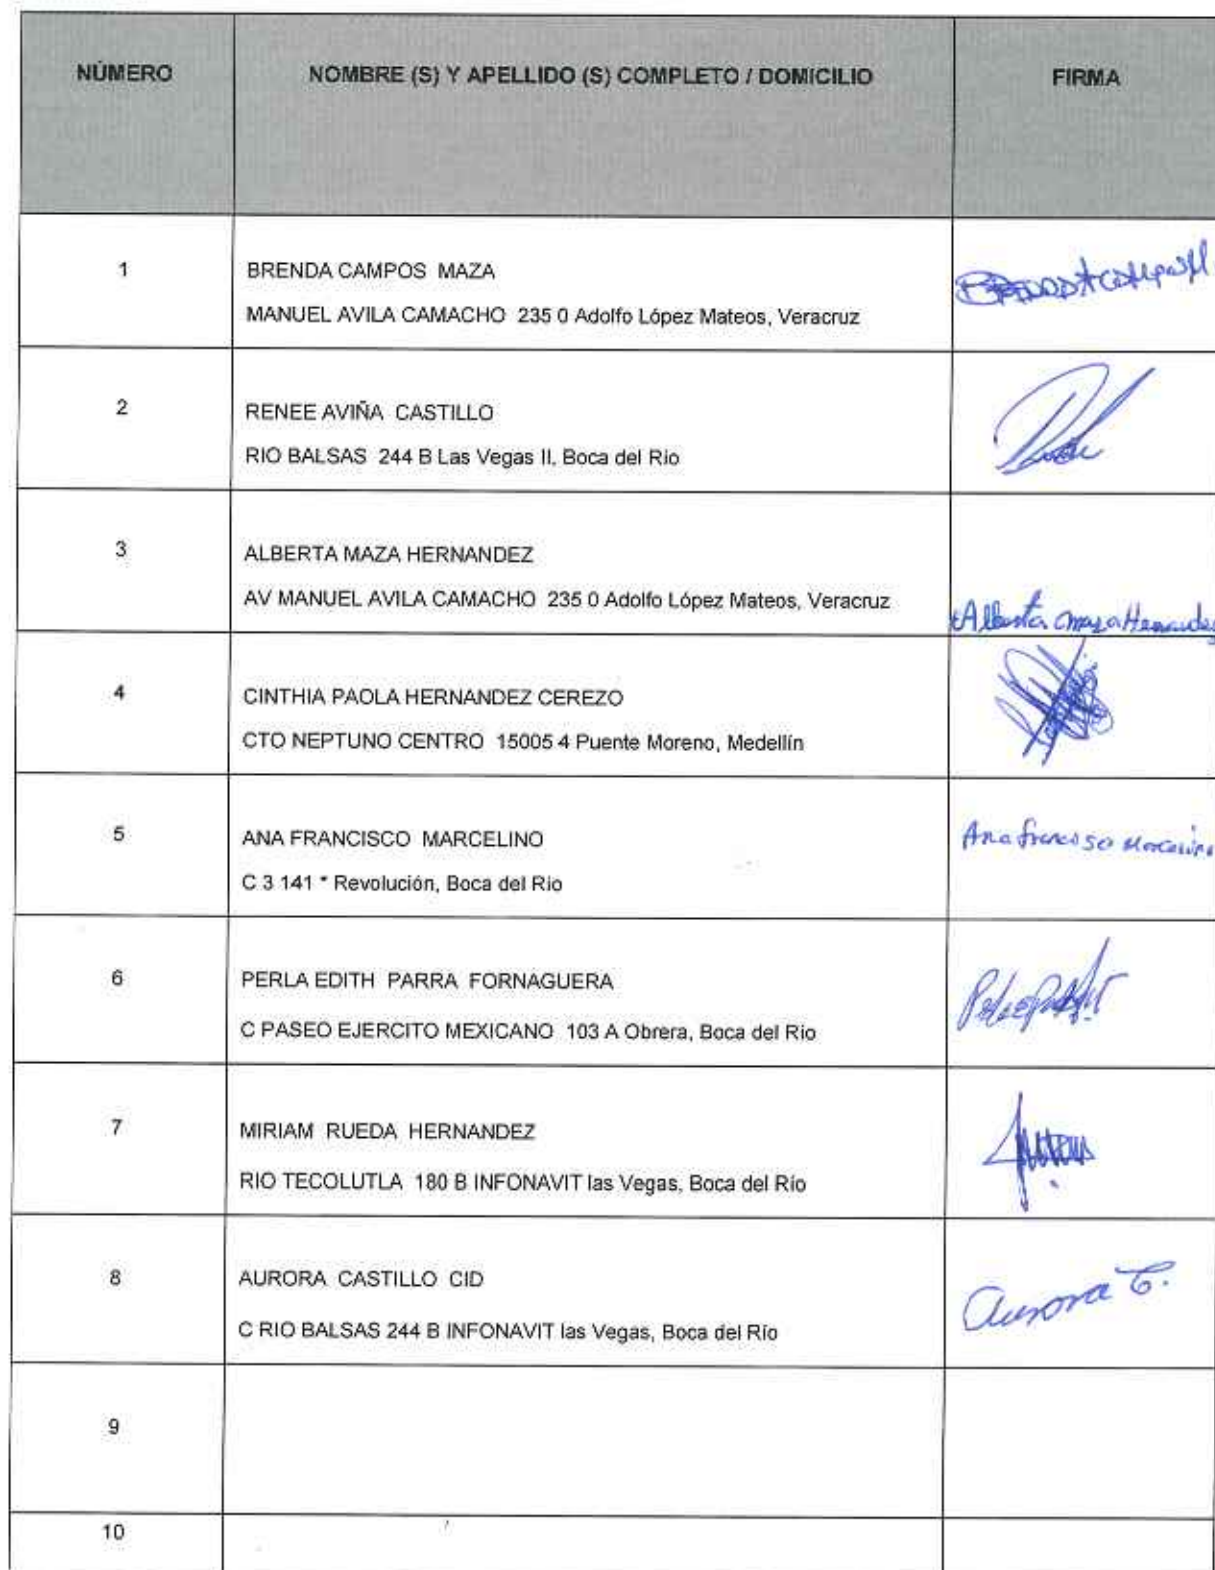 NÚMERO NOMBRE (S) Y APELLIDO (S) COMPLETO / DOMICILIO FIRMA
1 BRENDA CAMPOS MAZA
MANUEL AVILA CAMACHO 235 0 Adolfo López Mateos, Veracruz
2 RENEE AVIÑA CASTILLO
RIO BALSAS 244 B Las Vegas II, Boca del Río
3 ALBERTA MAZA HERNANDEZ
AV MANUEL AVILA CAMACHO 235 0 Adolfo López Mateos, Veracruz
Alberta Maza Hernandez
4 CINTHIA PAOLA HERNANDEZ CEREZO
CTO NEPTUNO CENTRO 15005 4 Puente Moreno, Medellín
5 ANA FRANCISCO MARCELINO Ana
C 3 141 * Revolución, Boca del Río
6 PERLA EDITH PARRA FORNAGUERA
C PASEO EJERCITO MEXICANO 103 A Obrera, Boca del Río
7 MIRIAM RUEDA HERNANDEZ
RIO TECOLUTLA 180 B INFONAVIT las Vegas, Boca del Río
8 AURORA CASTILLO CID Aurora C.
C RIO BALSAS 244 B INFONAVIT las Vegas, Boca del Río
9
10